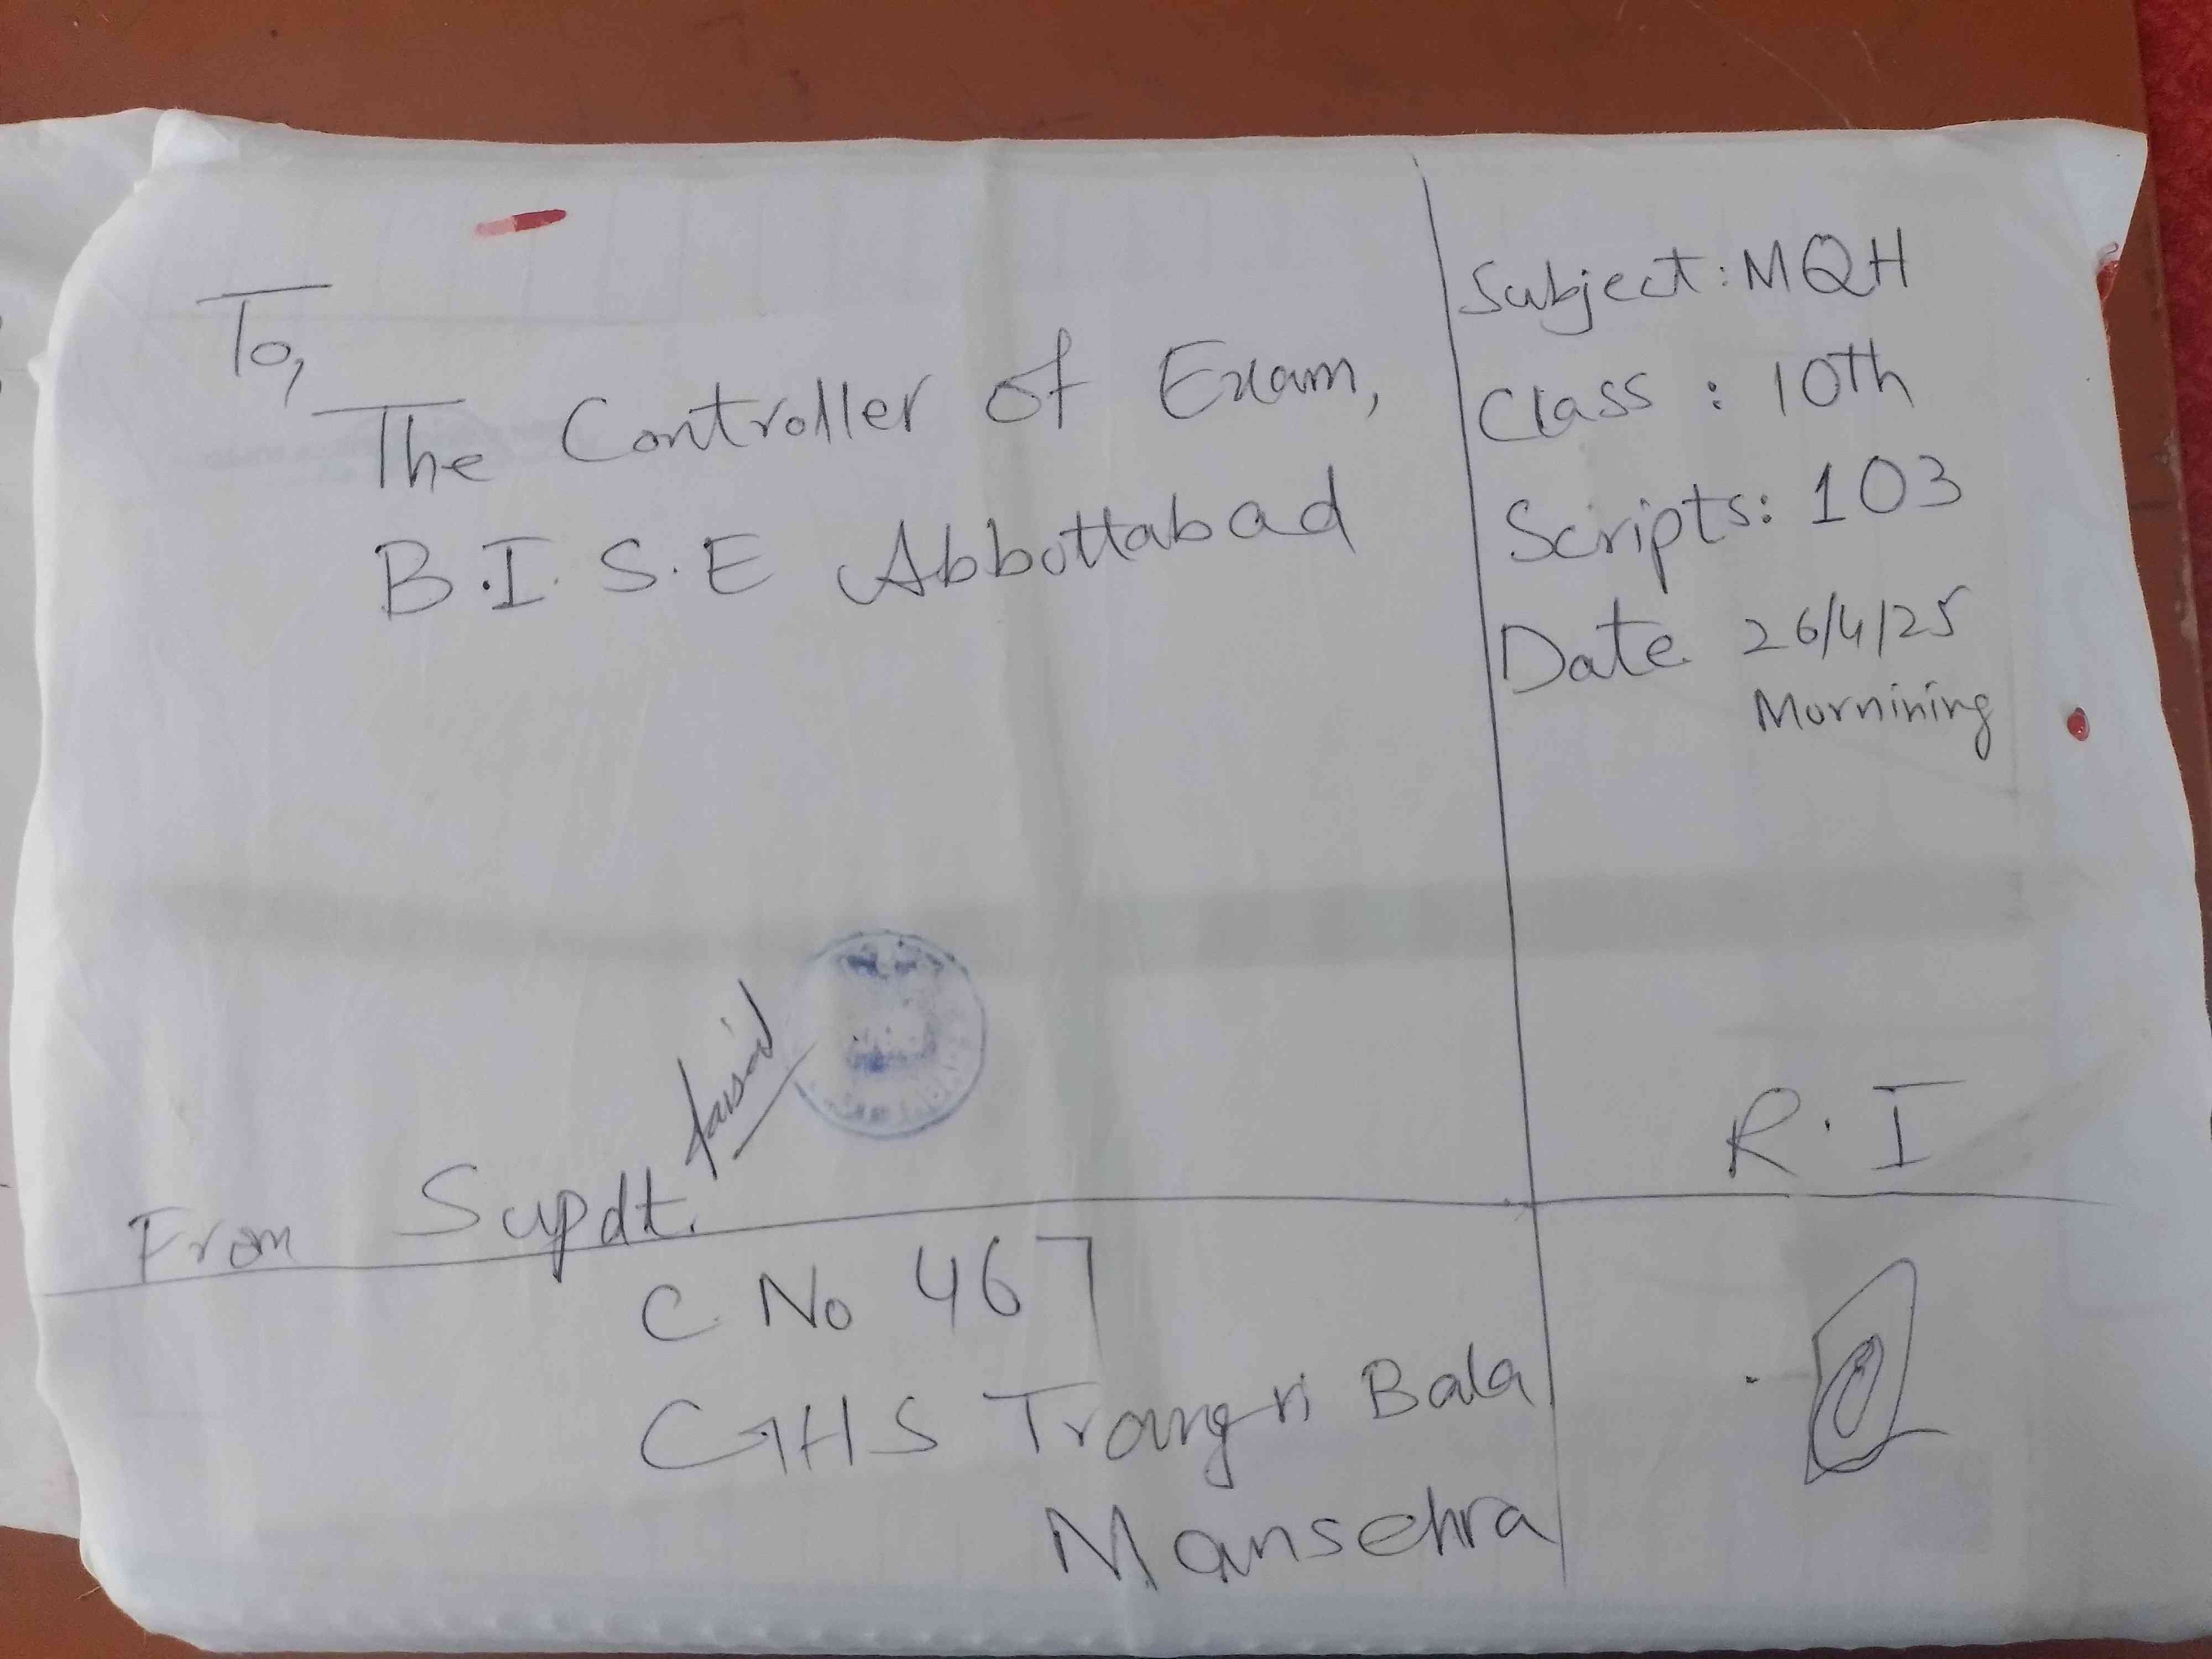 To,
The Controller of Exam,
B.I.S.E Abbottabad
Subject: MQH
Class : 10th
Scripts: 103
Date 26/4/25
Mornining
R.I
From Supdt.
C No 467
GHS Trangri Bala
Mansehra